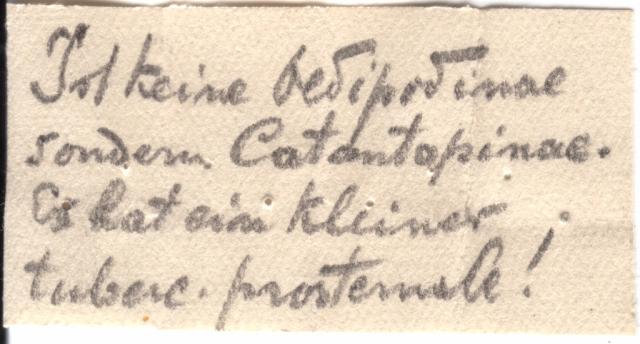 Ist keine Oedipodinae
sondern Catantopinae.
Es hat ein kleiner
tuberc. prosternale!